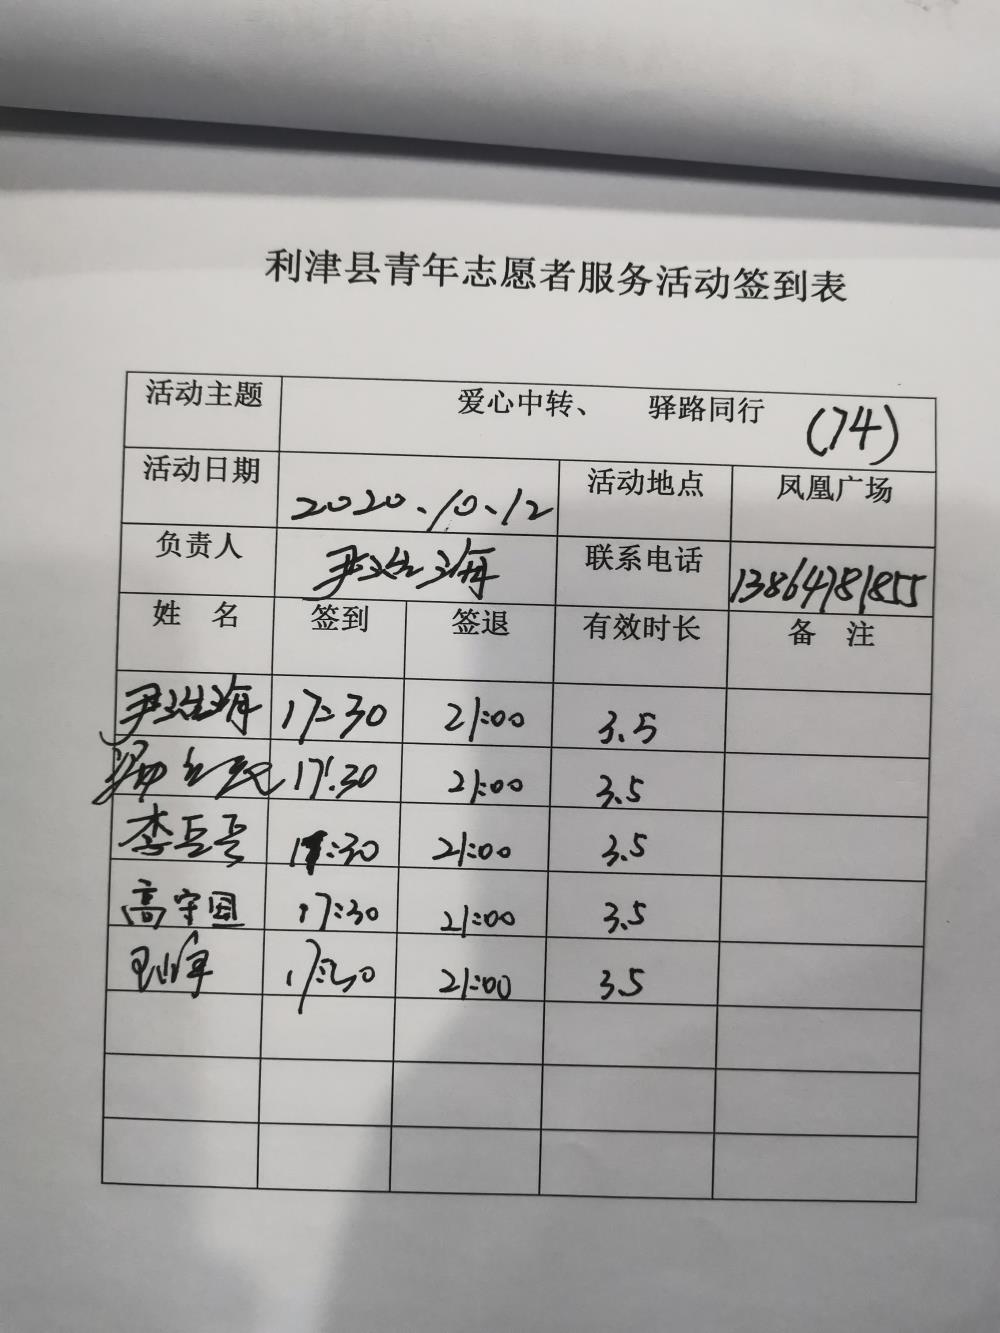 利津县青年志愿者服务活动签到表
活动主题 爱心中转、 驿路同行 (74)
活动日期 2020.10.12 活动地点 凤凰广场
负责人 联系电话 13864781855
姓 名 签到 签退 有效时长 备 注
17:30 21:00 3.5
17:30 21:00 3.5
李 17:30 21:00 3.5
高守国 17:30 21:00 3.5
17:30 21:00 3.5